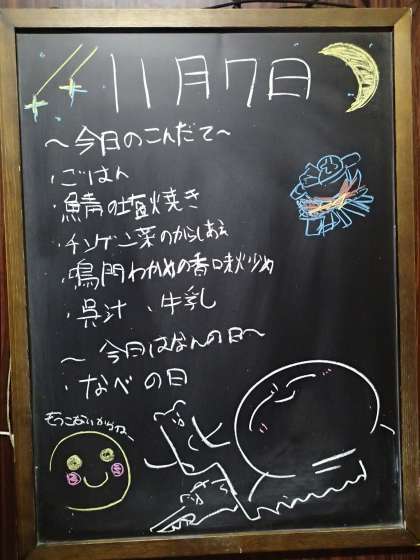 11月7日
～今日のこんだて～
・ごはん
・鯖の塩焼き
・チンゲン菜のからしあえ
・鳴門わかめの香味炒め
・呉汁 ・牛乳
～今日はなんの日～
・なべの日